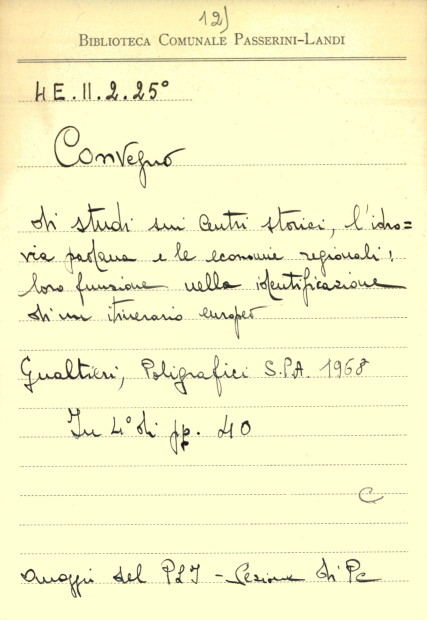 12)
BIBLIOTECA COMUNALE PASSERINI-LANDI
4E.II.2.25°
Convegno
di studi sui centri storici, l'idro=
via padana e le economie regionali:
loro funzione nella identificazione
di un itinerario europeo
Gualtieri, Poligrafici S.P.A. 1968
In 4° di pp. 40
C
omaggio del PLI - Sezione di Pc